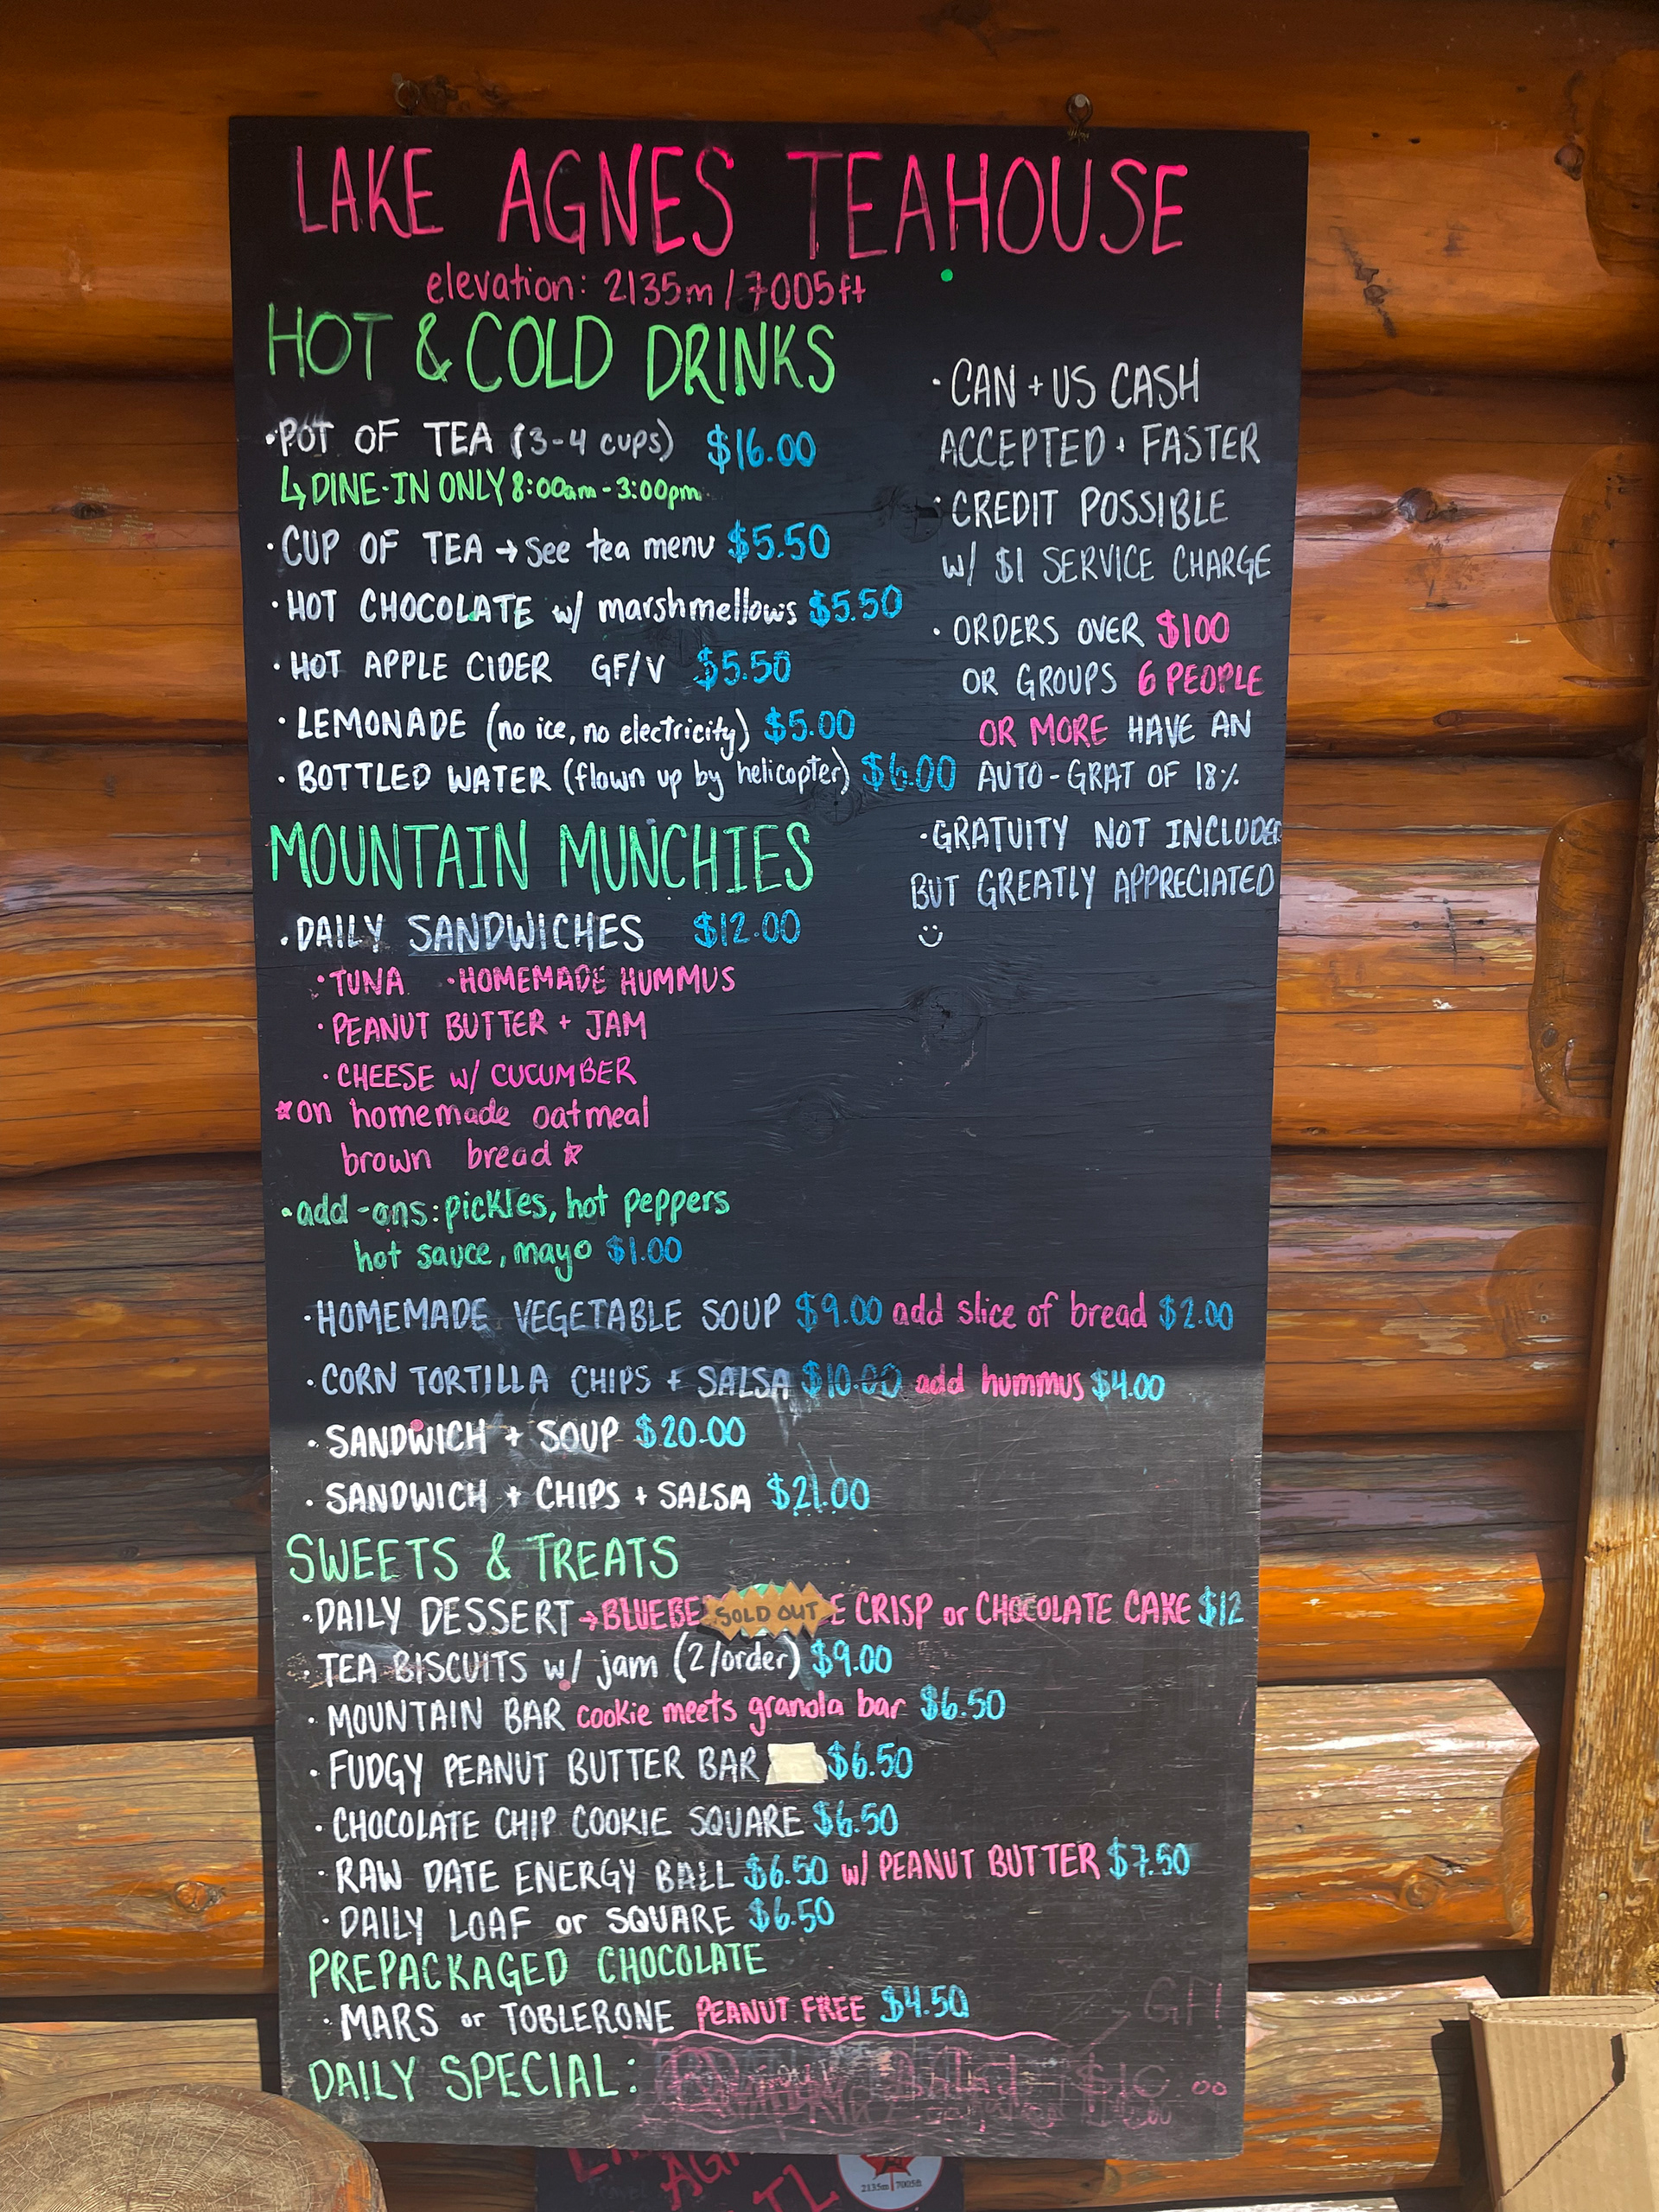 LAKE AGNES TEAHOUSE
elevation: 2135m / 7005ft
HOT & COLD DRINKS
• POT OF TEA (3-4 cups) $16.00
↳ DINE-IN ONLY 8:00am - 3:00pm
• CUP OF TEA → See tea menu $5.50
• HOT CHOCOLATE w/ marshmellows $5.50
• HOT APPLE CIDER GF/V $5.50
• LEMONADE (no ice, no electricity) $5.00
• BOTTLED WATER (flown up by helicopter) $6.00
• CAN + US CASH
ACCEPTED + FASTER
• CREDIT POSSIBLE
w/ $1 SERVICE CHARGE
• ORDERS OVER $100
OR GROUPS 6 PEOPLE
OR MORE HAVE AN
AUTO-GRAT OF 18%
• GRATUITY NOT INCLUDED
BUT GREATLY APPRECIATED
MOUNTAIN MUNCHIES
• DAILY SANDWICHES $12.00
• TUNA • HOMEMADE HUMMUS
• PEANUT BUTTER + JAM
• CHEESE w/ CUCUMBER
*on homemade oatmeal
brown bread*
• add-ons: pickles, hot peppers
hot sauce, mayo $1.00
• HOMEMADE VEGETABLE SOUP $9.00 add slice of bread $2.00
• CORN TORTILLA CHIPS + SALSA $10.00 add hummus $4.00
• SANDWICH + SOUP $20.00
• SANDWICH + CHIPS + SALSA $21.00
SWEETS & TREATS
• DAILY DESSERT → SOLD OUT CRISP or CHOCOLATE CAKE $12
• TEA BISCUITS w/ jam (2/order) $9.00
• MOUNTAIN BAR cookie meets granola bar $6.50
• FUDGY PEANUT BUTTER BAR $6.50
• CHOCOLATE CHIP COOKIE SQUARE $6.50
• RAW DATE ENERGY BALL $6.50 w/ PEANUT BUTTER $7.50
• DAILY LOAF or SQUARE $6.50
PREPACKAGED CHOCOLATE
• MARS or TOBLERONE PEANUT FREE $4.50
GF!
DAILY SPECIAL:
2135m 7005ft